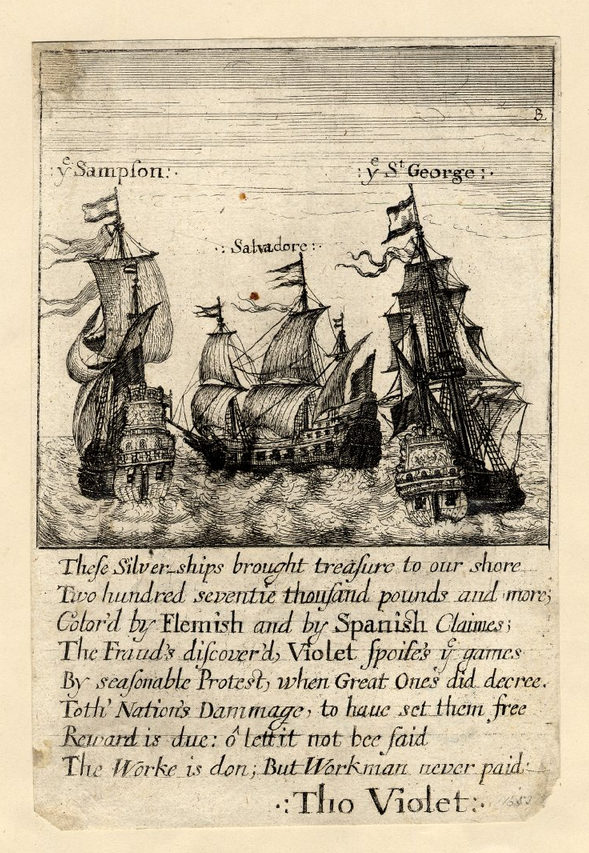 B.
:yͤ Sampſon:·
:·yͤ Sᵗ George:·
·:Salvadore:·
Theſe Silver ships brought treaſure to our shore
Two hundred seventie thouſand pounds and more;
Color'd by Flemish and by Spanish Claimes;
The Fraud's diſcover'd, Violet ſpoiſe's yͤ games
By seaſonable Protest, when Great One's did decree.
Toth' Nation's Dammage, to haue set them free
Reward is due: ô lett it not bee ſaid
The Worke is don; But Workman never paid:
·:Tho Violet:·